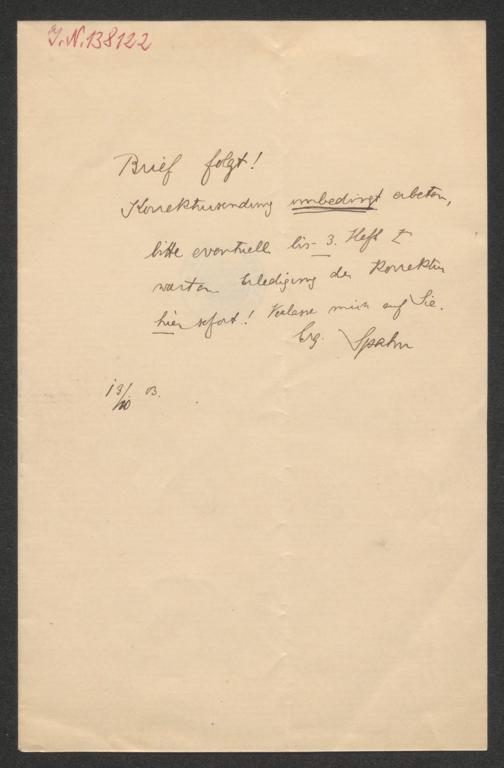 J.N. 138122
Brief folgt!
Korrektursendung unbedingt erbeten,
bitte eventuell bis 3. Heft z
warten Erledigung der Korrektur
hier sofort! Verlasse mich auf Sie.
Erg. Spahn
13/10 03.